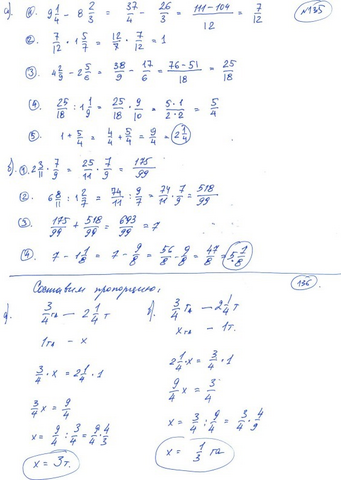 а) ① 9 1/4 - 8 2/3 = 37/4 - 26/3 = (111-104)/12 = 7/12
№135
2. 7/12 · 1 5/7 = 12/7 · 7/12 = 1
3. 4 2/9 - 2 5/6 = 38/9 - 17/6 = (76-51)/18 = 25/18
④ 25/18 : 1 1/9 = 25/18 · 9/10 = (5·1)/(2·2) = 5/4
⑤ 1 + 5/4 = 4/4 + 5/4 = 9/4 = 2 1/4
б) ① 2 3/11 · 7/9 = 25/11 · 7/9 = 175/99
② 6 8/11 : 1 2/7 = 74/11 : 9/7 = 74/11 · 7/9 = 518/99
3. 175/99 + 518/99 = 693/99 = 7
④ 7 - 1 1/8 = 7 - 9/8 = 56/8 - 9/8 = 47/8 = 5 7/8
Составим пропорцию:
136.
а) 3/4 га — 2 1/4 т
1 га - x
3/4 · x = 2 1/4 · 1
3/4 x = 9/4
x = 9/4 : 3/4 = 9/4 · 4/3
x = 3 т.
б) 3/4 га — 2 1/4 т
x га — 1 т.
2 1/4 · x = 3/4 · 1
9/4 x = 3/4
x = 3/4 : 9/4 = 3/4 · 4/9
x = 1/3 га